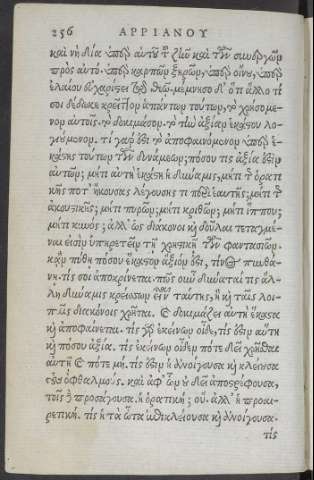 256 ΑΡΡΙΑΝΟΥ
καὶ νὴ δία ὑπὲρ αὐτοῦ τοῦ ζῆν καὶ τῶν συνεργῶν
πρὸς αὐτό. ὑπὲρ καρπῶν ξηρῶν, ὑπὲρ οἴνου, ὑπὲρ
ἐλαίου εὐχαρίστει τῷ θεῷ. μέμνησο δ' ὅτι ἄλλο τί
σοι δέδωκε κρεῖττον ἁπάντων τούτων, τὸ χρησόμε
νον αὐτοῖς. τὸ δοκιμάσον. τὸ τὴν ἀξίαν ἑκάστου λο
γιούμενον. τί γάρ ἐστι τὸ ἀποφαινόμενον ὑπὲρ ἑ-
κάστης τούτων τῶν δυνάμεων; πόσου τις ἀξία ἐστὶν
αὐτῶν; μήτι αὐτὴ ἑκάστη ἡ δύναμις, μήτι τῆς ὁρατι
κῆς ποτ' ἤκουσας λεγούσης τι περὶ ἑαυτῆς; μήτι τῆς
ἀκουστικῆς; μήτι πυρῶν; μήτι κριθῶν; μήτι ἵππου;
μήτι κυνός; ἀλλ' ὡς διάκονοι καὶ δοῦλαι τεταγμέ
ναι εἰσὶν ὑπηρετεῖν τῇ χρηστικῇ τῶν φαντασιῶν.
κἂν πύθῃ πόσου ἕκαστον ἄξιόν ἐστι, τίνος πυνθά-
νῃ. τίς σοι ἀποκρίνεται. πῶς οὖν δύναταί τις ἄλ-
λη δύναμις κρείσσων εἶναι ταύτης, ἣ καὶ ταῖς λοι-
παῖς διακόνοις χρῆται. καὶ δοκιμάζει αὐτὴ ἕκαστα
καὶ ἀποφαίνεται. τίς γὰρ ἐκείνων οἶδε, τίς ἐστιν αὐτὴ
καὶ πόσου ἀξία. τίς ἐκείνων οἶδεν πότε δεῖ χρῆσθαι
αὐτῇ καὶ πότε μή. τίς ἐστιν ἡ ἀνοίγουσα καὶ κλείουσα
τοὺς ὀφθαλμούς. καὶ ἀφ' ὧν δεῖ ἀποστρέφουσα,
τοῖς δὲ προσάγουσα. ἡ ὁρατική; οὔ. ἀλλ' ἡ προαι-
ρετική. τίς ἡ τὰ ὦτα ἐπικλείουσα καὶ ἀνοίγουσα.
τίς